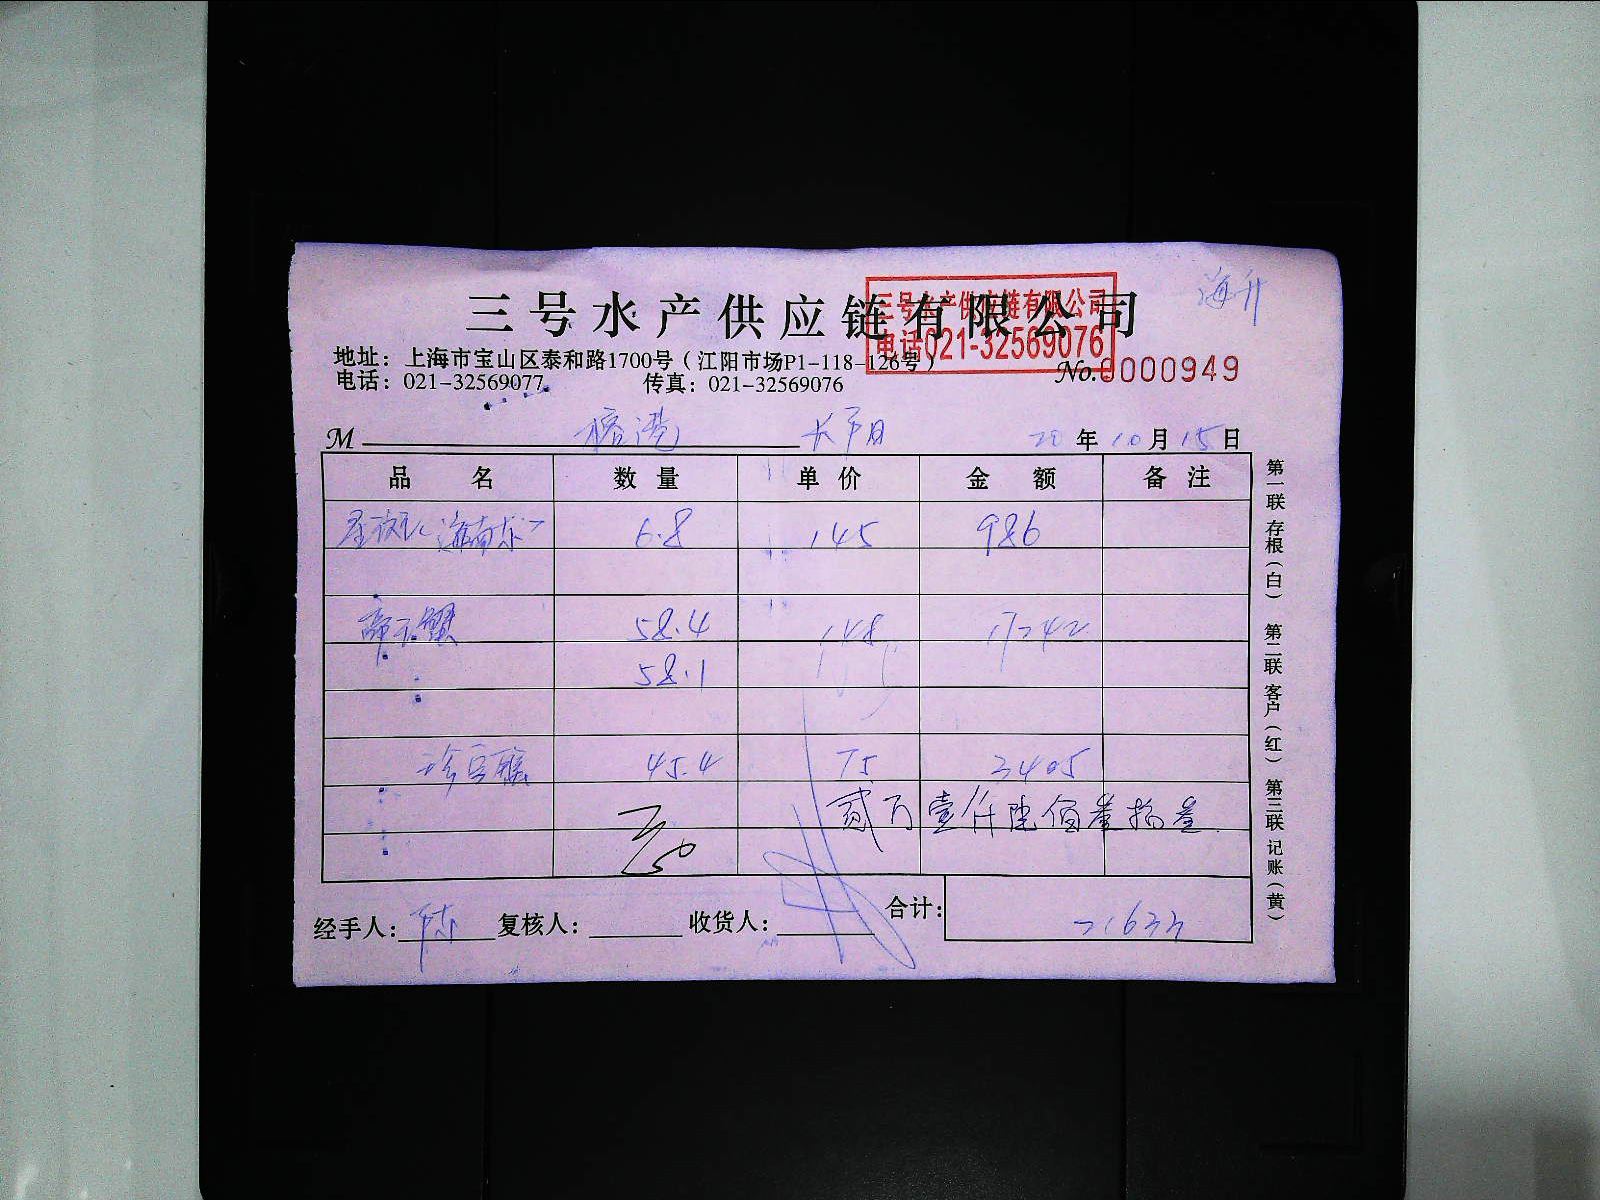 三号水产供应链有限公司
三号水产供应链有限公司
电话021-32569076
海升
地址：上海市宝山区泰和路1700号（江阳市场P1-118-126号）
电话：021-32569077 传真：021-32569076
No. 0000949
M 榕港 20年10月15日
品 名 数 量 单 价 金 额 备 注
海南 6.8 145 986
帝王蟹 58.4 148 17242
58.1
珍宝蟹 45.4 75 3405
贰万壹仟陆佰叁拾叁
经手人：陈 复核人： 收货人： 合计： 21633
第一联 存根（白） 第二联 客户（红） 第三联 记账（黄）